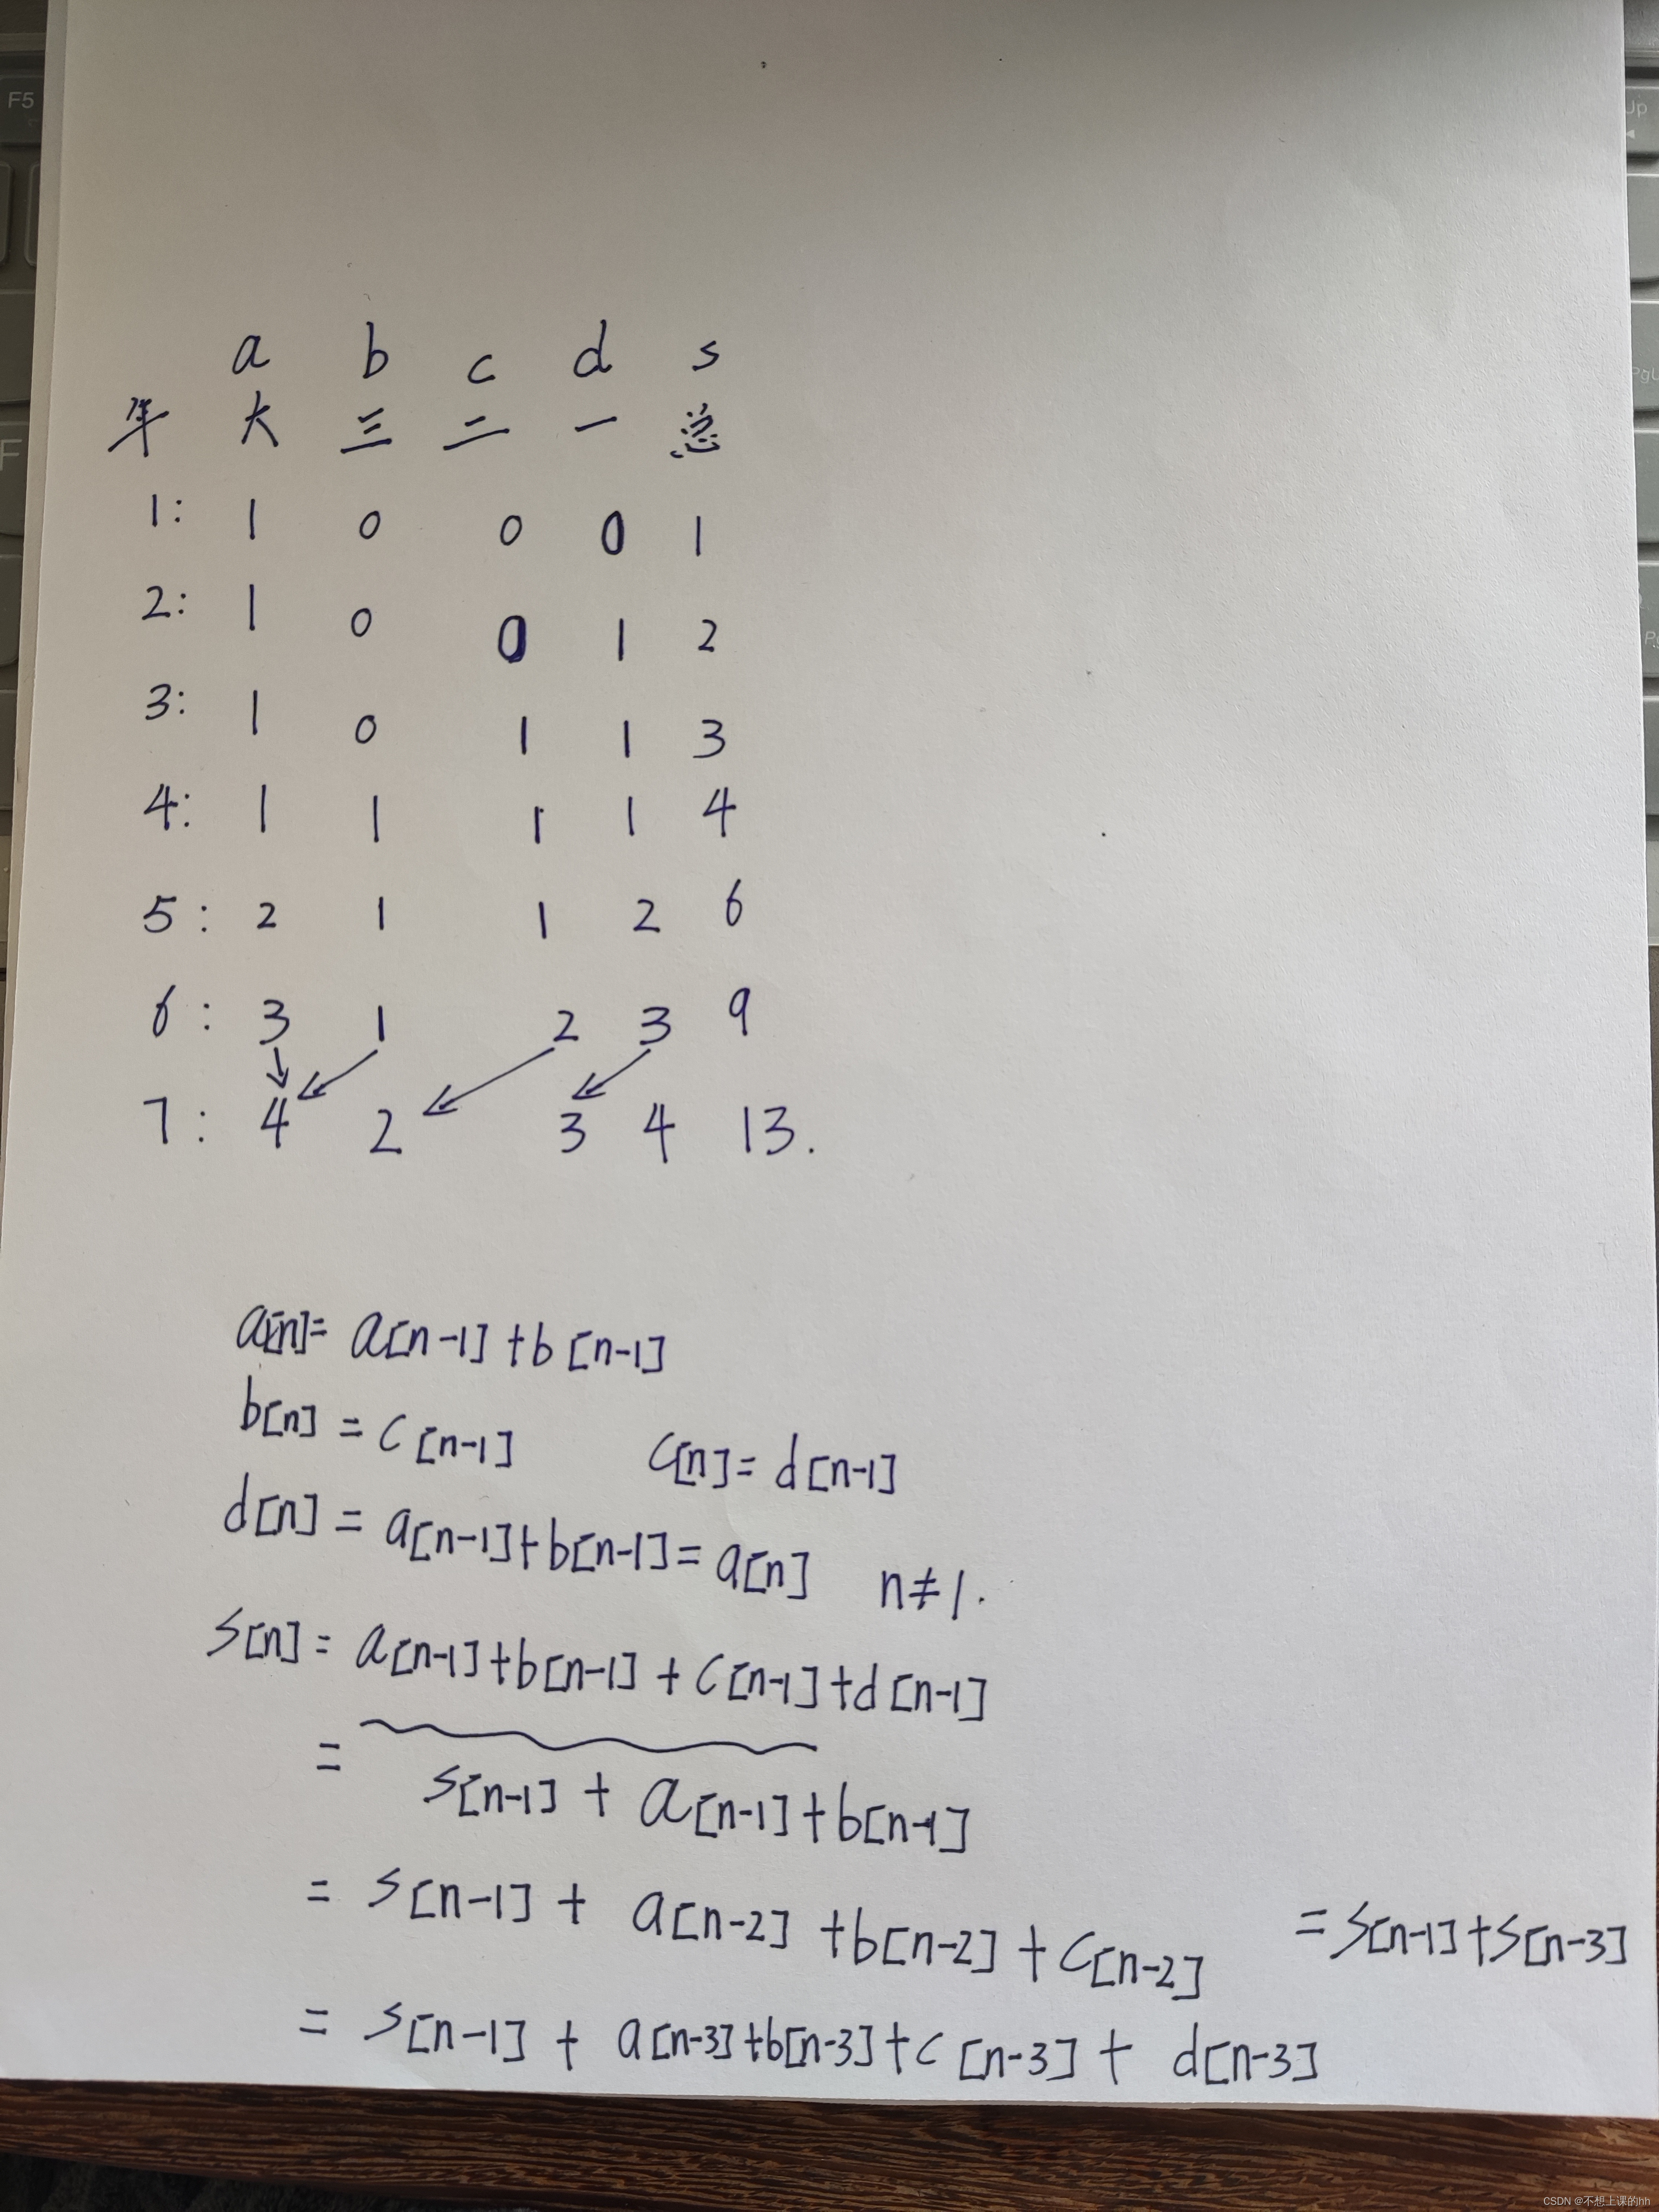 F5
Up
PgU
F
a b c d s
年 大 三 二 一 总
1: 1 0 0 0 1
2: 1 0 0 1 2
3: 1 0 1 1 3
4: 1 1 1 1 4
5: 2 1 1 2 6
6: 3 1 2 3 9
7: 4 2 3 4 13.
a[n]= a[n-1]+b[n-1]
b[n] = c[n-1] c[n]= d[n-1]
d[n] = a[n-1]+b[n-1]= a[n] n≠1.
s[n] = a[n-1]+b[n-1]+c[n-1]+d[n-1]
= s[n-1] + a[n-1]+b[n-1]
= s[n-1] + a[n-2] +b[n-2]+c[n-2] = s[n-1]+s[n-3]
= s[n-1] + a[n-3]+b[n-3]+c[n-3]+ d[n-3]
CSDN @不想上课的hh